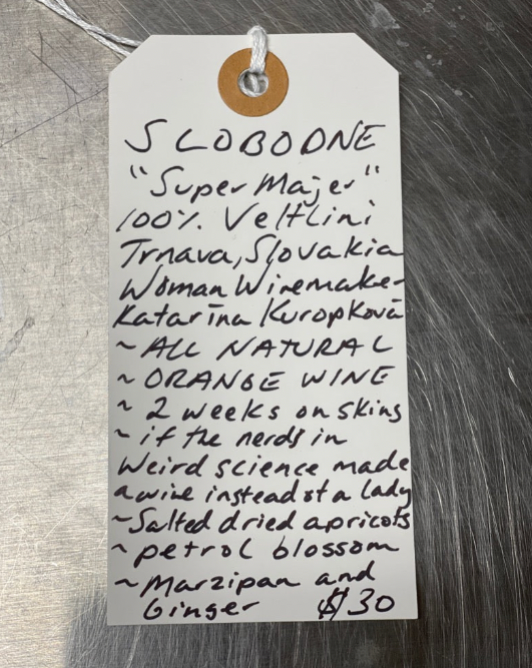 SLOBODNE
"Super Majer"
100% Veltlini
Trnava, Slovakia
Woman Winemaker
Katarīna Kuropková
~ ALL NATURAL
~ ORANGE WINE
~ 2 weeks on skins
~ if the nerds in
Weird science made
a wine instead of a lady
~ Salted dried apricots
~ petrol blossom
~ Marzipan and
Ginger $30